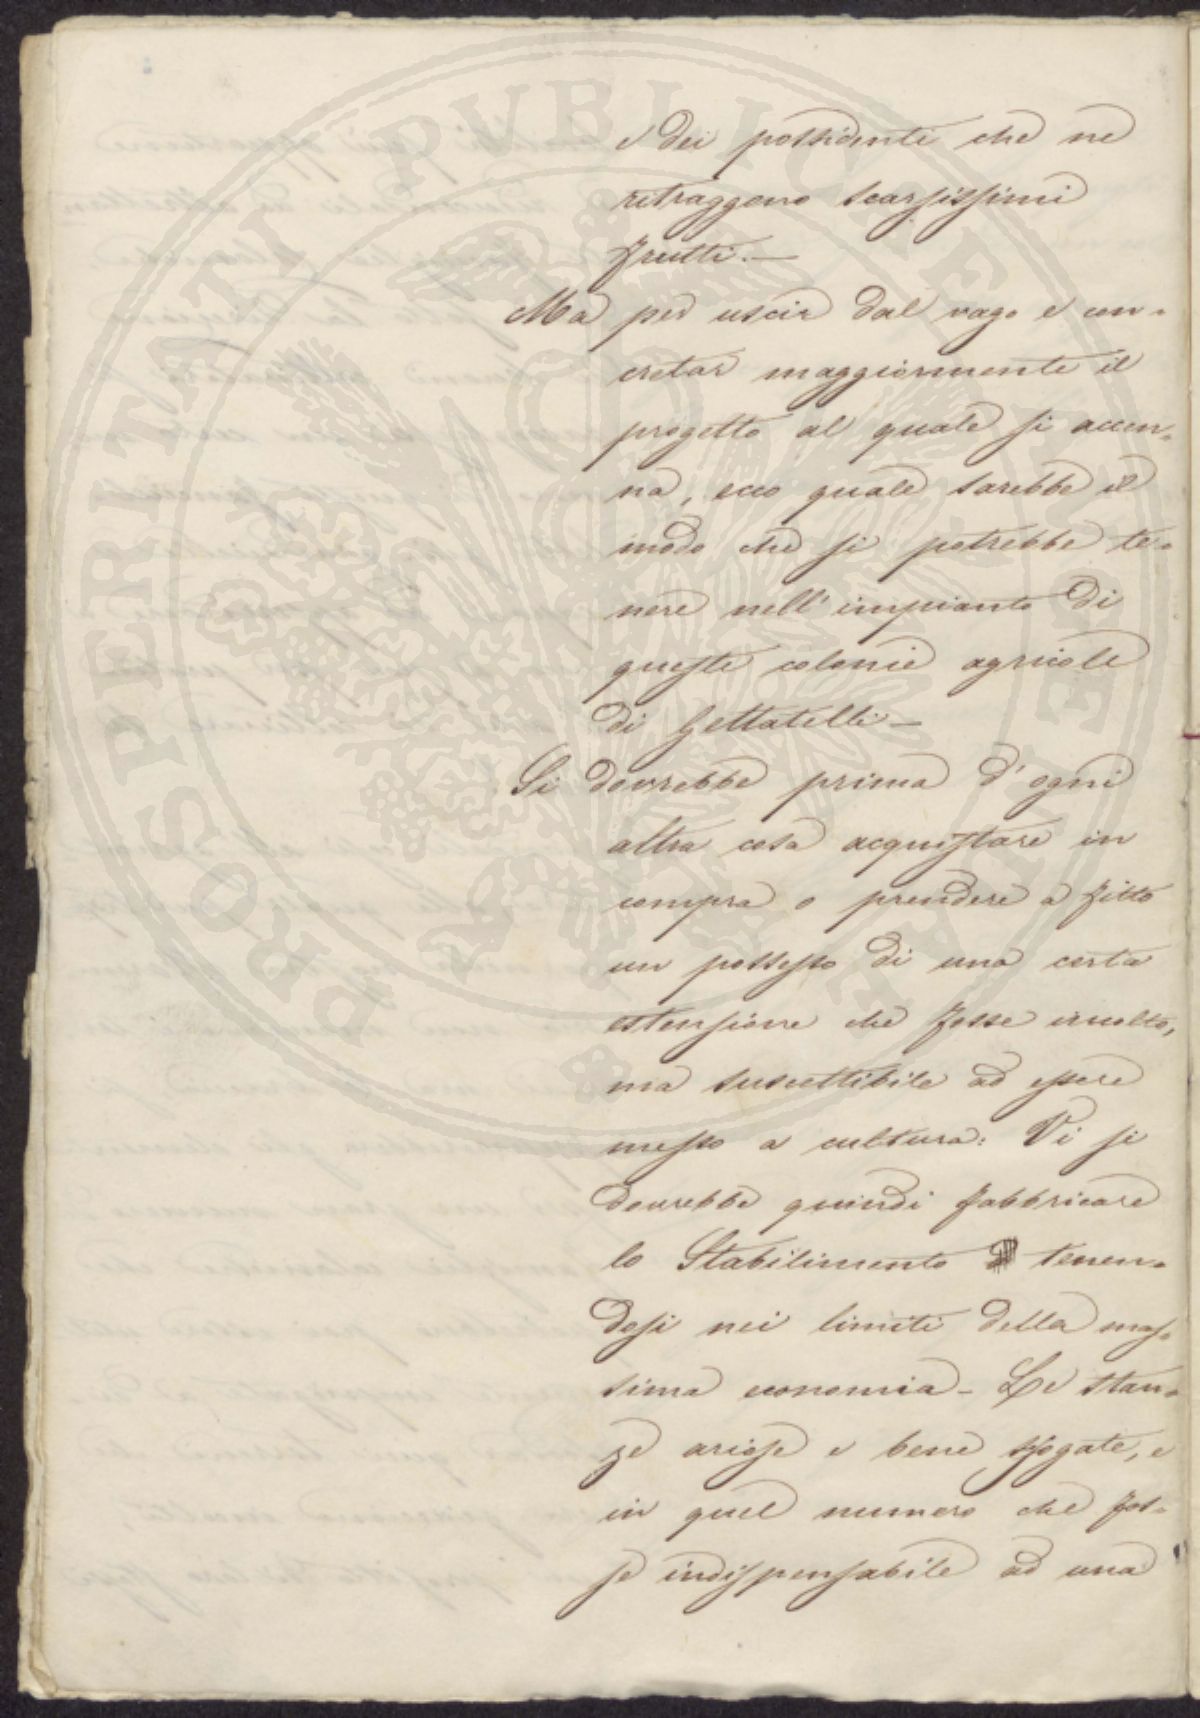 e dei possidenti che ne
ritraggono scarsissimi
frutti. —
Ma per uscir dal vago e con-
cretar maggiormente il
progetto al quale si accen-
na, ecco quale sarebbe il
modo che si potrebbe te-
nere nell'impianto di
queste colonie agricole
di Gettatelli —
Si dovrebbe prima d'ogni
altra cosa acquistare in
compra o prendere a fitto
un possesso di una certa
estensione che fosse incolto,
ma suscettibile ad essere
messo a cultura: Vi si
dovrebbe quindi fabbricare
lo Stabilimento tenen-
dosi nei limiti della mas-
sima economia - Le stan-
ze ariose e bene sfogate, e
in quel numero che fos-
se indispensabile ad una
PROSPERITATI PUBLICAE AUGENDAE